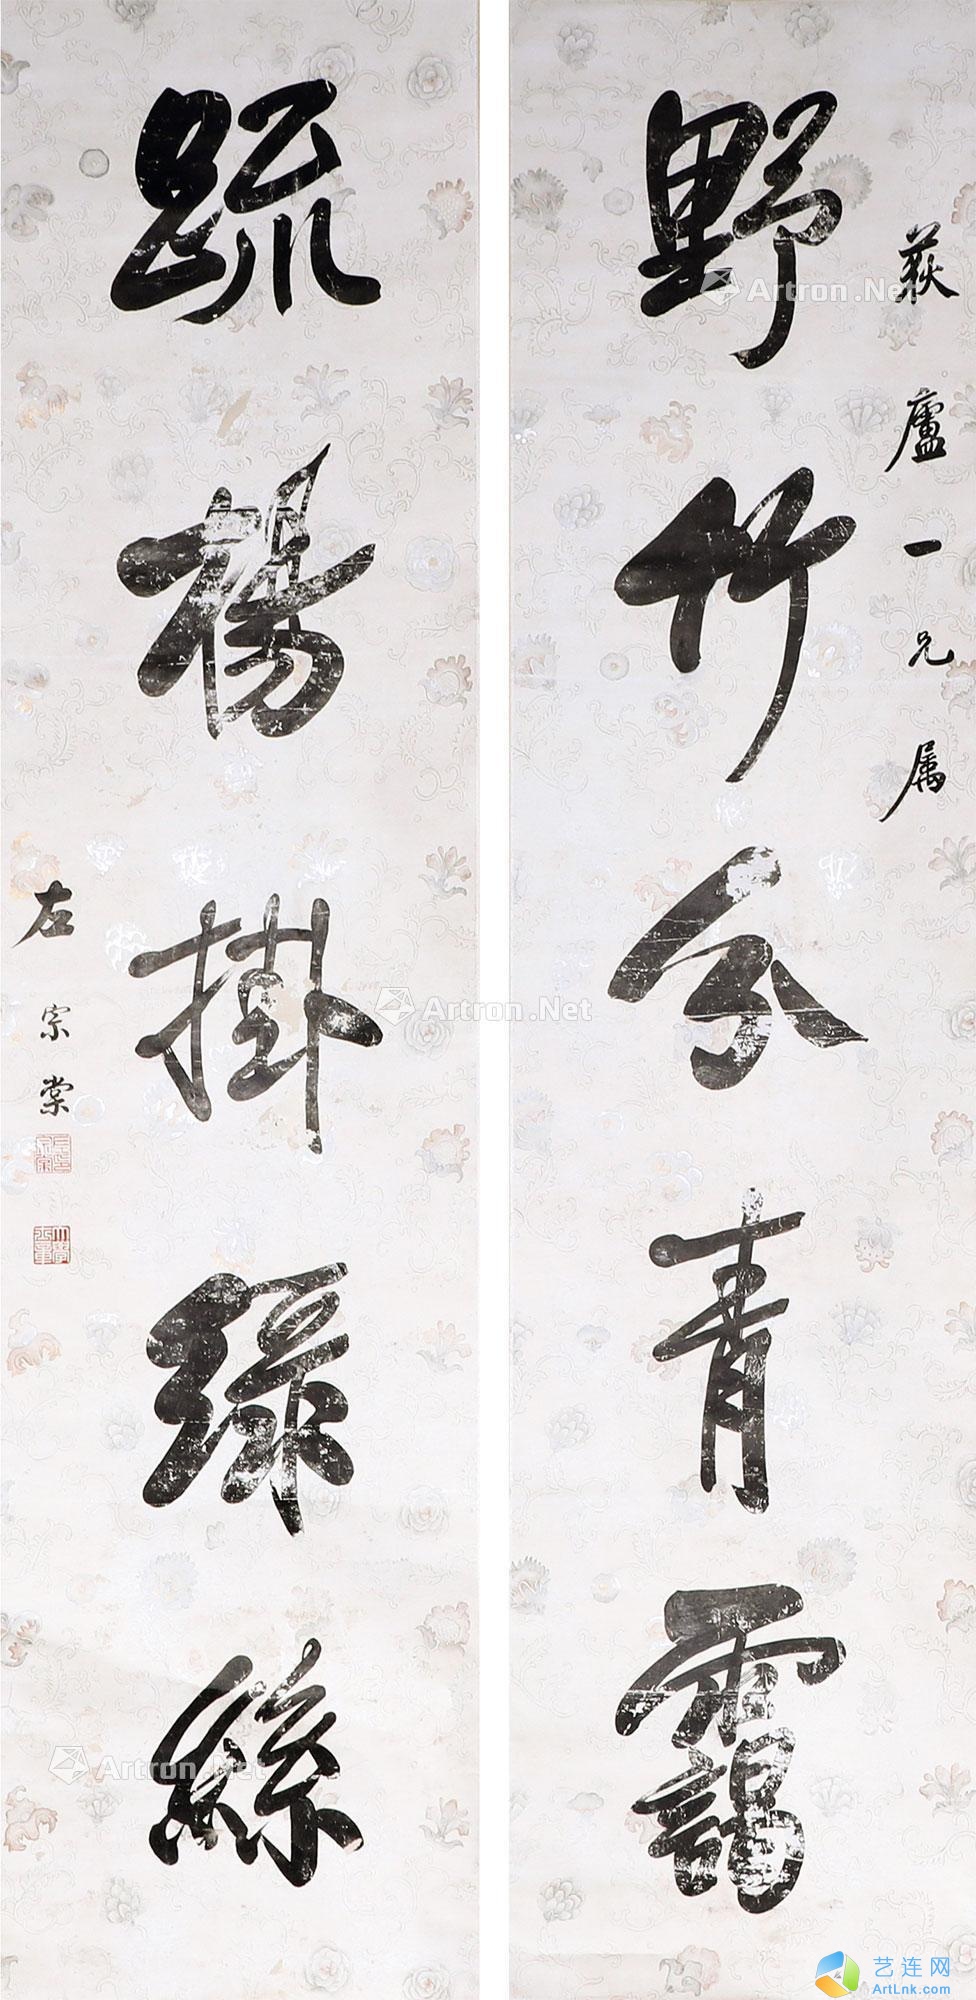 萩廬一兄属
野竹分青靄
疏楊掛綠絲
左宗棠
Artron.Net
Artron.Net
Artron.Net
艺连网
ArtLnk.com